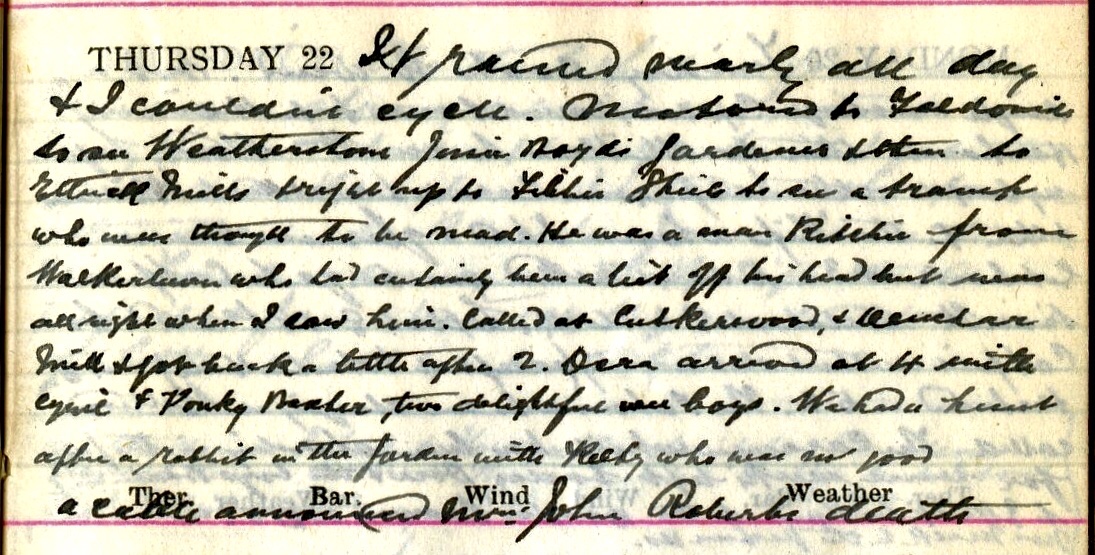 THURSDAY 22 It rained nearly all day
& I couldnt cycle. Motored to
to see Weatherstone Boyds Gardener & then to
Ettrick Mills & right up to Shiel to see a tramp
who was thought to be mad. He was a man Ritchie from
Walkerburn who had certainly been a bit off his head but was
all right when I saw him. Called at &
Mill & got back a little after 2. Dora arrived at 4 with
Cyril & Ponky Baxter two delightful wee boys. We had a hunt
after a rabbit in the garden with Kelly who was no good
Ther. Bar. Wind Weather
a cable announced Mrs John Roberts death